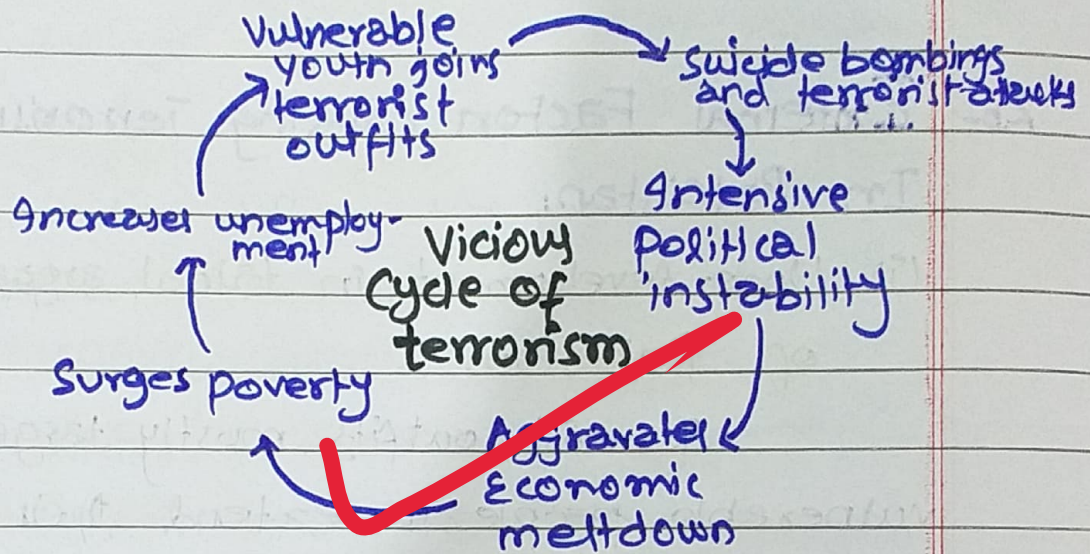 Vulnerable
youth joins
terrorist
outfits
suicide bombings
and terrorist attacks
Intensive
political
instability
Aggravates
Economic
meltdown
Surges poverty
Increases unemploy-
ment
Vicious
Cycle of
terrorism